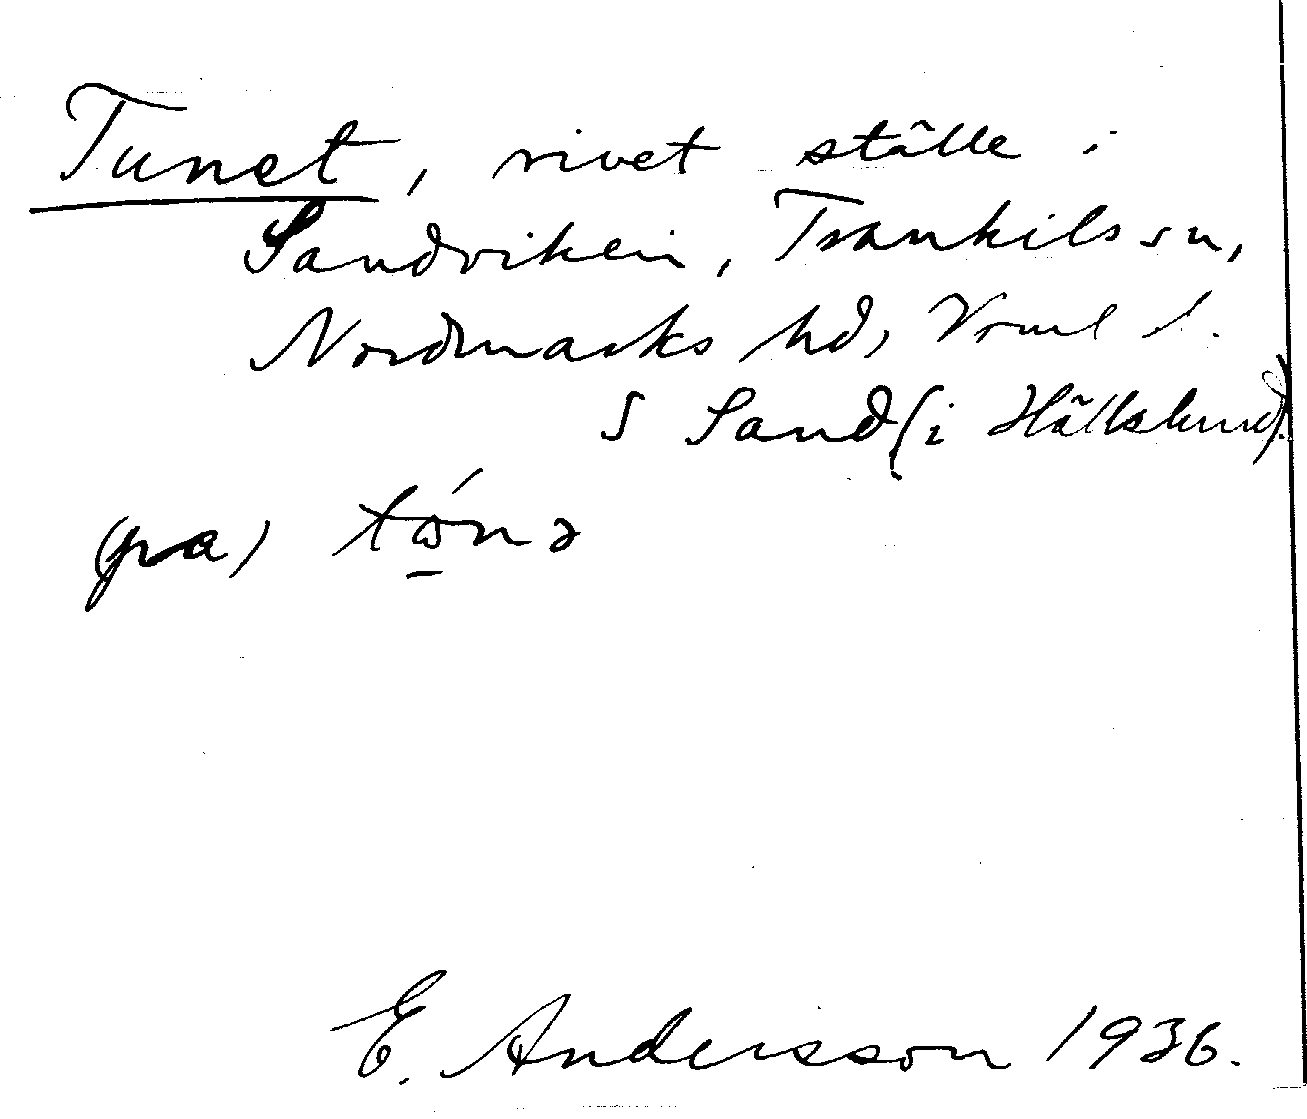 Tunet, rivet ställe i
Sandviken, Trankils sn,
Nordmarks hd, Vrml l.
S Sand (i Hällslund).
(på)
E. Andersson 1936.